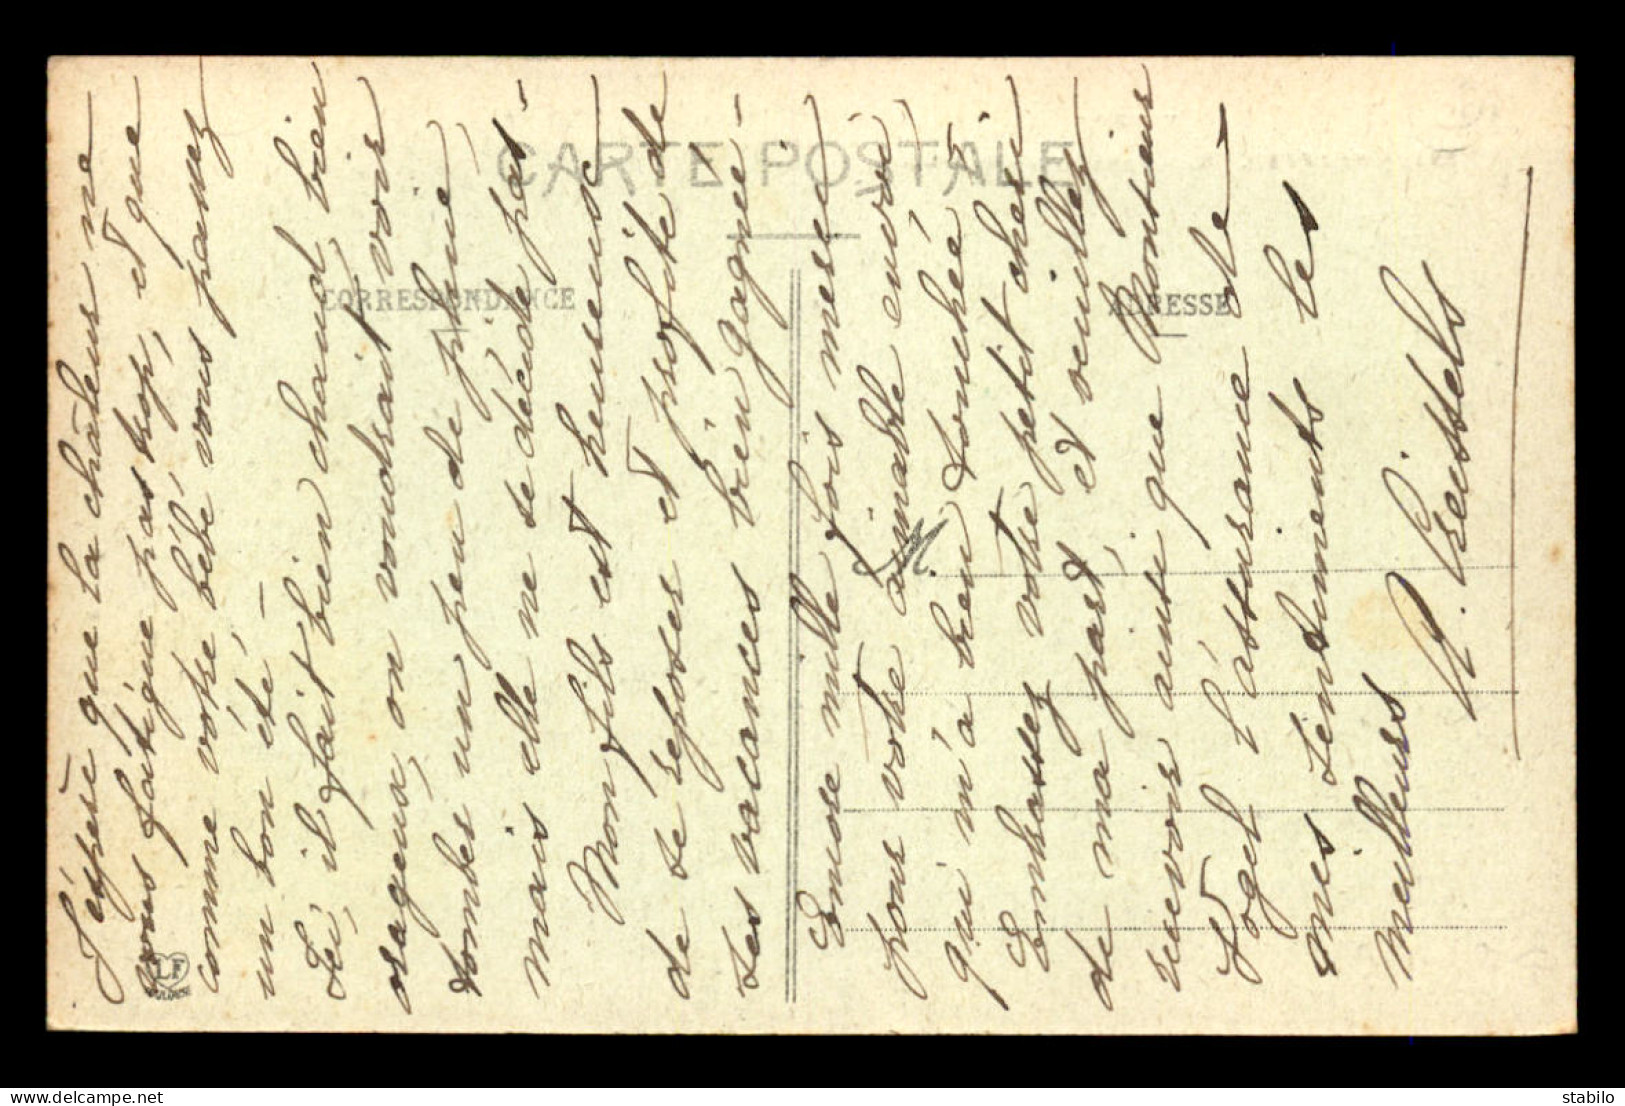 J'espère que la chaleur ne
vous fatigue pas trop, et que
comme votre bébé vous passez
un bon été –
Ici il fait bien chaud, bien
orageux, on voudrait voir
tomber un peu de pluie
mais elle ne se décide pas –
Mon fils est heureux
de se reposer et profite de
ses vacances bien gagné-
Encore mille fois merci
pour votre aimable envoi
qui m'a bien touchée –
Embrassez votre petit chéri
de ma part, et veuillez
recevoir ainsi que Monsieur
Vogel l'assurance de
mes sentiments les
meilleurs
CARTE POSTALE
CORRESPONDANCE
ADRESSE
M.
LF
TOULOUSE
delcampe.net
stabilo